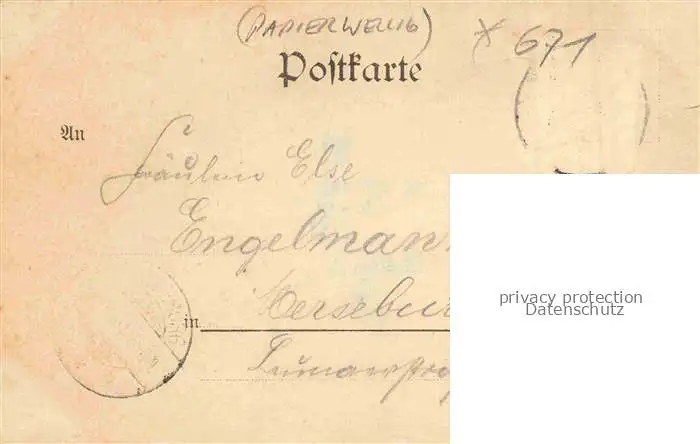 (PAPIERWELLIG) * 671
Postkarte
An
Fräulein Else
Engelmann
Mersebur
in
privacy protection
Datenschutz